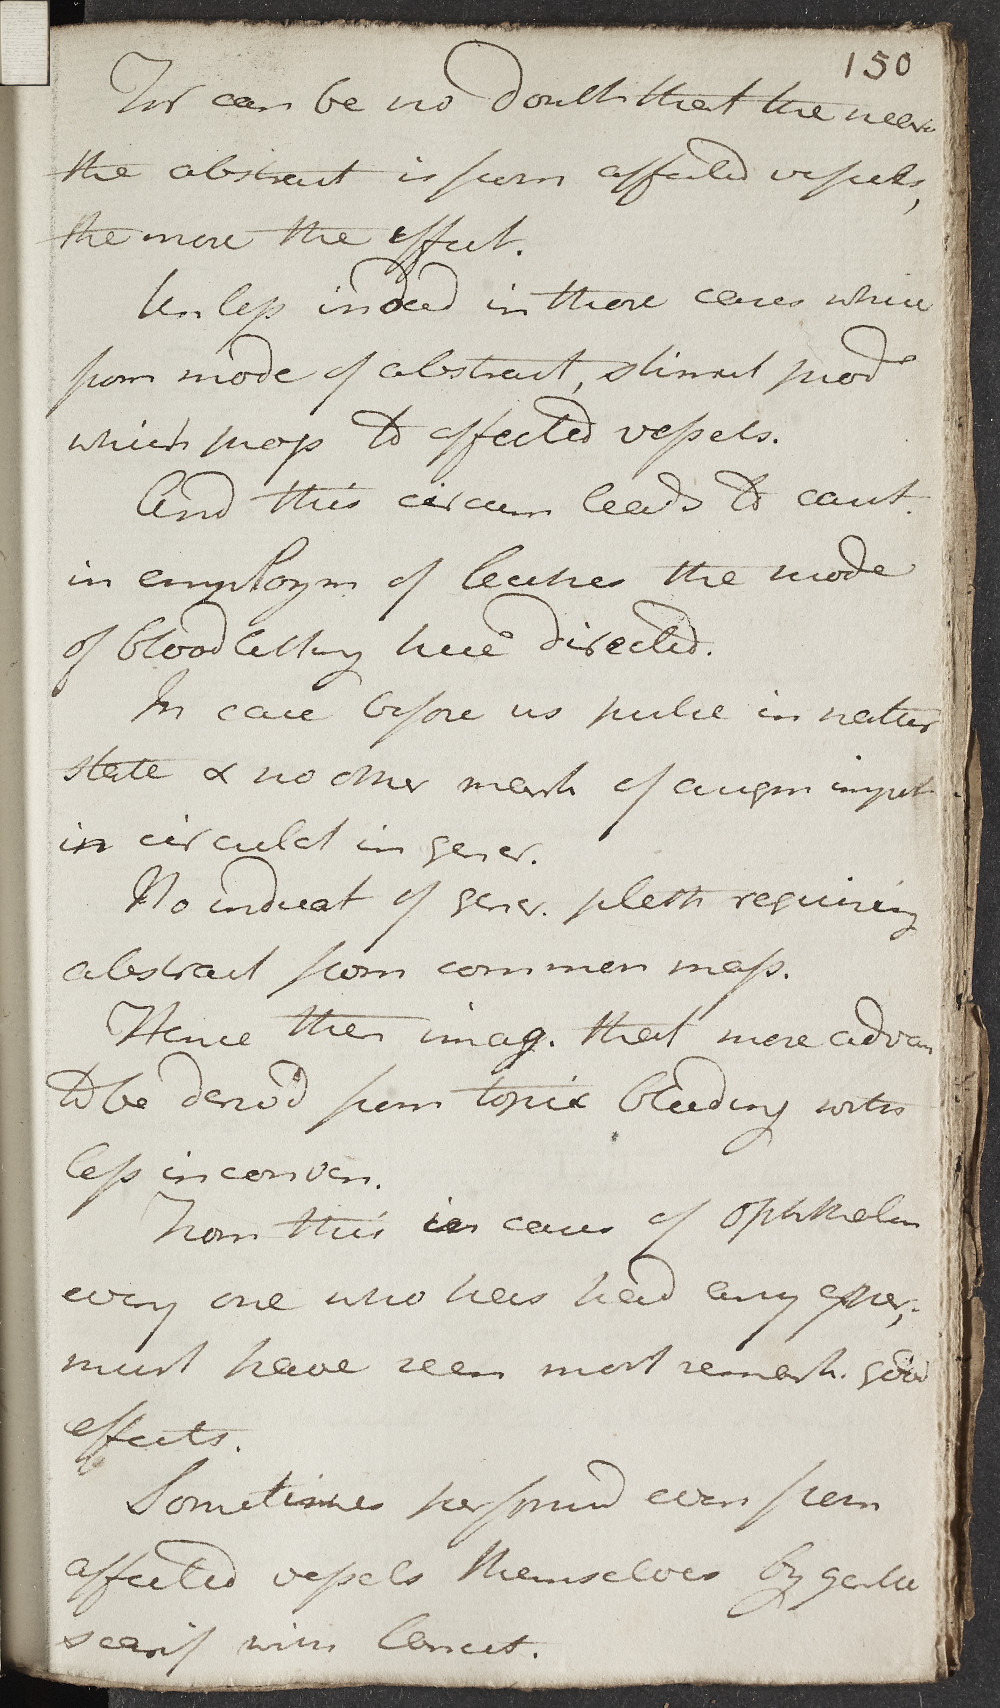 150
Thr can be no doubt that the nearer
the abstract is from affected vessels,
the more the effect.
Unless indeed in those cases where
from mode of abstract, stimul prod
which prop to affected vessels.
And this circum leads to caut.
in employm of leeches the mode
of bloodletting here directed.
In case before us pulse in natur
state & no other mark of augm impet
in circulat in gener.
No indicat of gener. pleth requiring
abstract from common mass.
Hence then imag. that more advan
to be deriv'd from topic bleeding with
less inconven.
From this in cases of ophthalm
every one who has had any exper,
must have seen most remark. good
effects.
Sometimes perform'd even from
affected vessels themselves by gentle
scarif with lancet.